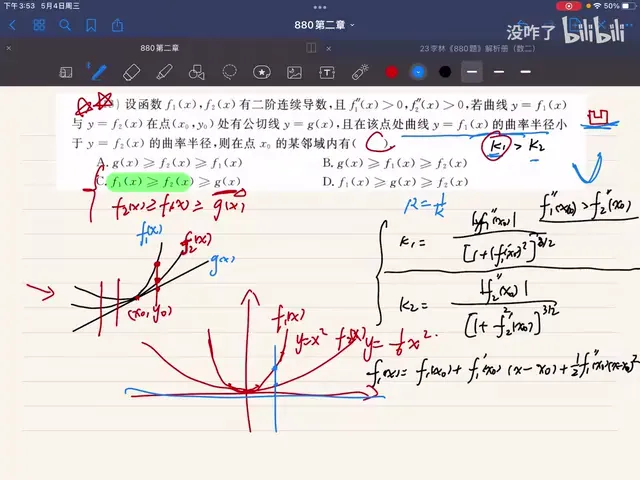 下午3:53 5月4日周三
50%
没咋了 bilibili
880第二章
880第二章
23李林《880题》解析册（数二）
设函数 f₁(x), f₂(x) 有二阶连续导数，且 f₁″(x)>0, f₂″(x)>0，若曲线 y=f₁(x)
与 y=f₂(x) 在点(x₀,y₀)处有公切线 y=g(x)，且在该点处曲线 y=f₁(x) 的曲率半径小
于 y=f₂(x) 的曲率半径，则在点 x₀ 的某邻域内有（ C ）.
K₁ > K₂
A. g(x)≥f₂(x)≥f₁(x)
B. g(x)≥f₁(x)≥f₂(x)
C. f₁(x)≥f₂(x)≥g(x)
D. f₁(x)≥g(x)≥f₂(x)
f₂(x)≥f₁(x)≥g(x)
R=1/K
f₁″(x₀)>f₂″(x₀)
K₁ = |f₁″(x₀)| / [1+(f₁′(x₀))²]^3/2
K₂ = |f₂″(x₀)| / [1+f₂′²(x₀)]^3/2
f₁(x)
f₂(x)
g(x)
(x₀,y₀)
f₁(x)
y=x²
f₂(x)
f₁(x)= f₁(x₀)+f₁′(x₀)(x-x₀)+½f₁″(x₀)(x-x₀)²